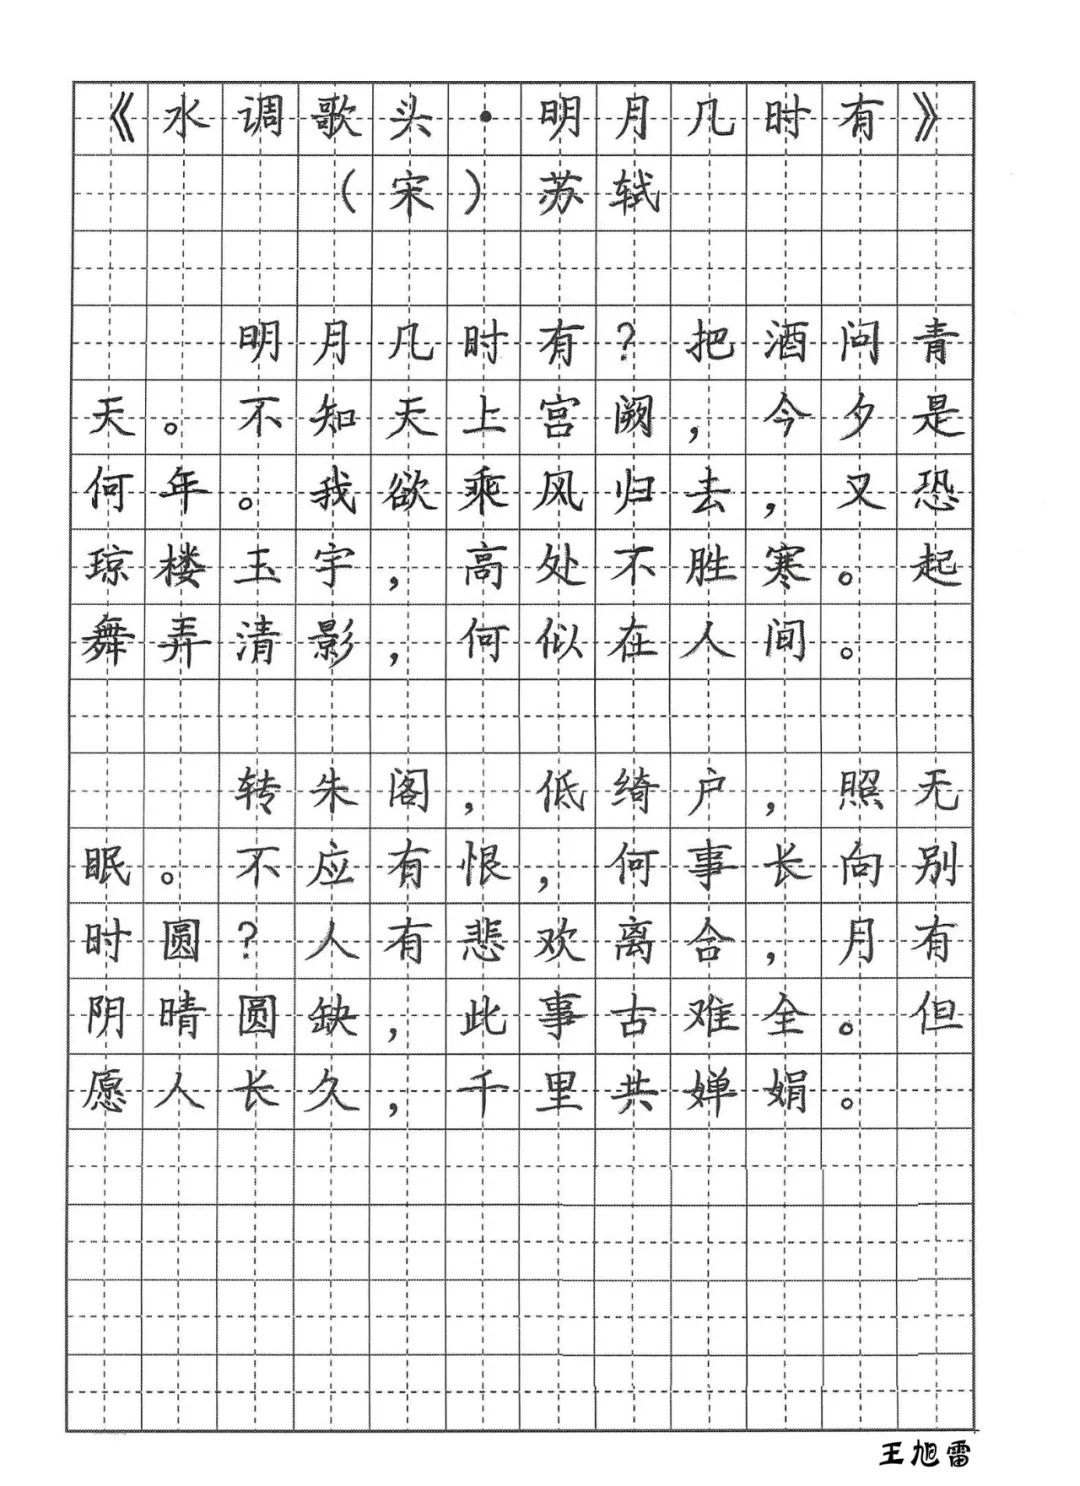 《水调歌头·明月几时有》
（宋）苏轼
明月几时有？把酒问青
天。不知天上宫阙，今夕是
何年。我欲乘风归去，又恐
琼楼玉宇，高处不胜寒。起
舞弄清影，何似在人间。
转朱阁，低绮户，照无
眠。不应有恨，何事长向别
时圆？人有悲欢离合，月有
阴晴圆缺，此事古难全。但
愿人长久，千里共婵娟。
王旭雷